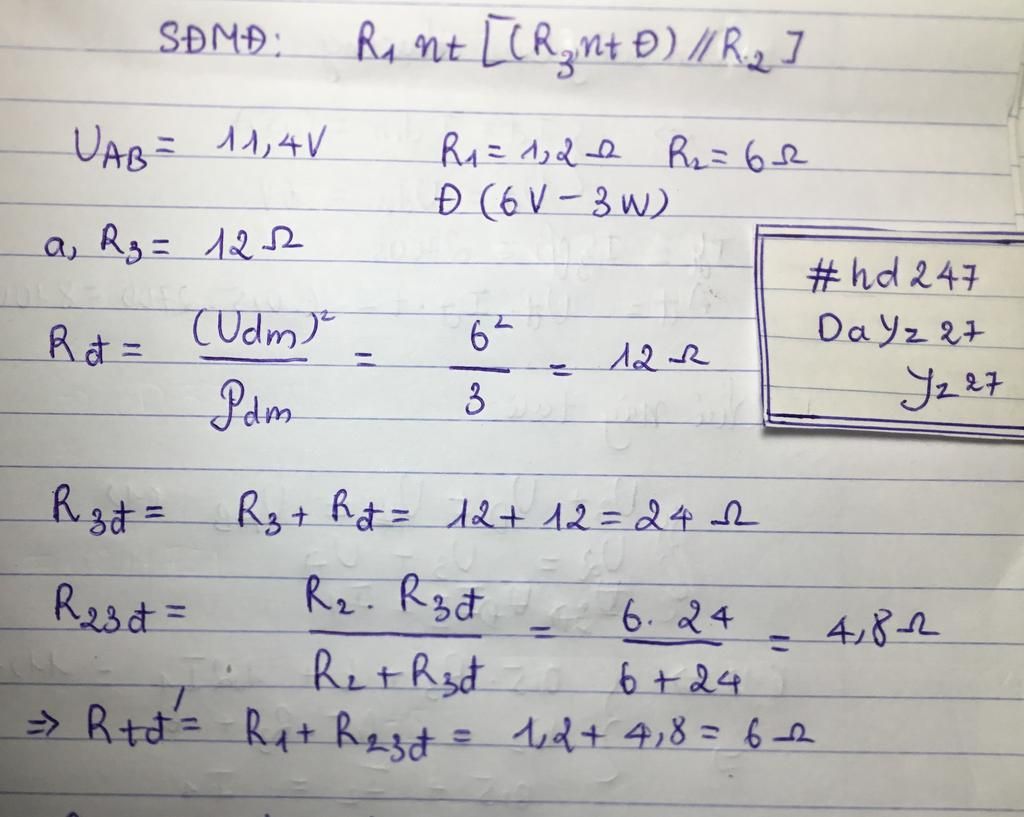 SĐMĐ: R₁ nt [(R₃ nt Đ) // R₂]
U_AB = 11,4V R₁ = 1,2 Ω R₂ = 6 Ω
Đ (6V – 3W)
a, R₃ = 12 Ω
#hd247
DaYz27
Yz27
Rđ = (Uđm)² / Pđm = 6² / 3 = 12 Ω
R₃đ = R₃ + Rđ = 12 + 12 = 24 Ω
R₂₃đ = R₂ . R₃đ / R₂ + R₃đ = 6 . 24 / 6 + 24 = 4,8 Ω
⇒ Rtđ' = R₁ + R₂₃đ = 1,2 + 4,8 = 6 Ω